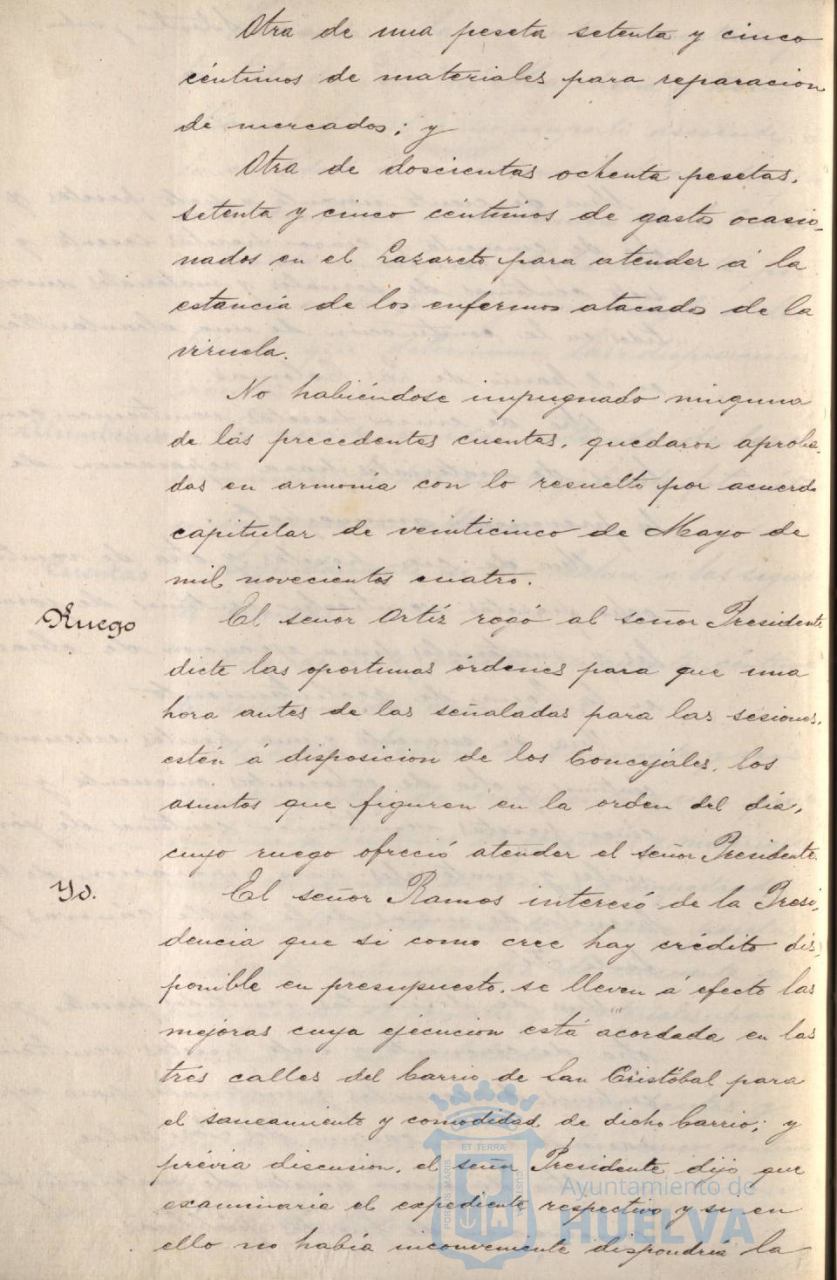 Otra de una peseta setenta y cinco
céntimos de materiales para reparacion
de mercados; y
Otra de doscientas ochenta pesetas,
setenta y cinco céntimos de gastos ocasio-
nados en el Lazareto para atender á la
estancia de los enfermos atacados de la
viruela.
No habiéndose impugnado ninguna
de las precedentes cuentas, quedaron aproba-
das en armonía con lo resuelto por acuerdo
capitular de veinticinco de Mayo de
mil novecientos cuatro.
Ruego
El señor Ortíz rogó al señor Presidente
dicte las oportunas órdenes para que una
hora antes de las señaladas para las sesiones,
estén á disposicion de los Concejales, los
asuntos que figuren en la orden del dia,
cuyo ruego ofreció atender el señor Presidente.
Yd.
El señor Ramos interesó de la Presi-
dencia que si como cree hay crédito dis-
ponible en presupuesto, se lleven á efecto las
mejoras cuya ejecucion está acordada en las
tres calles del barrio de San Cristóbal para
el saneamiento y comodidad de dicho barrio; y
prévia discusion, el señor Presidente dijo que
examinaría el expediente respectivo y si en
ello no había inconveniente dispondría la
ET TERRA
Ayuntamiento de
HUELVA